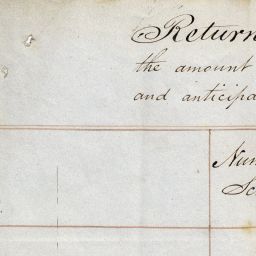 Return
the amount
and anticipa
Num
Sc